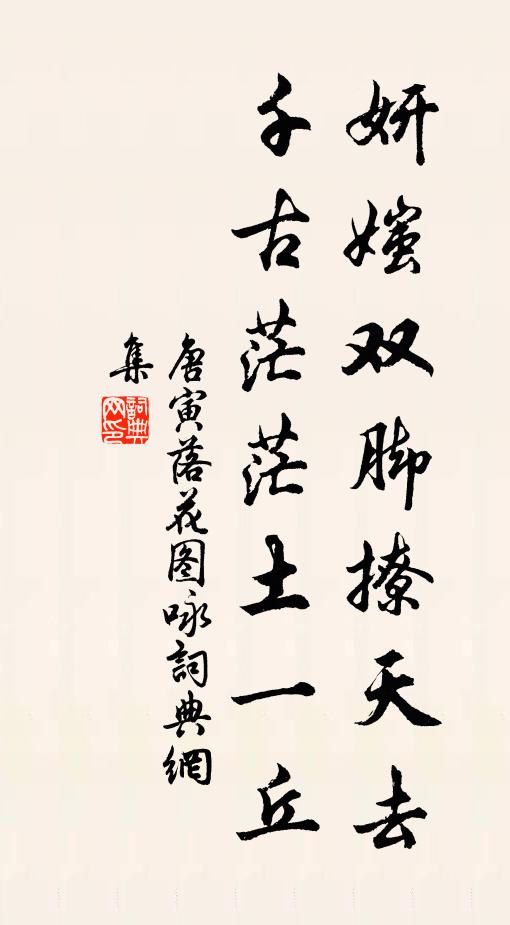 妍媸双脚撩天去
千古茫茫土一丘
唐寅落花图咏詞典網
集
詞典
网印